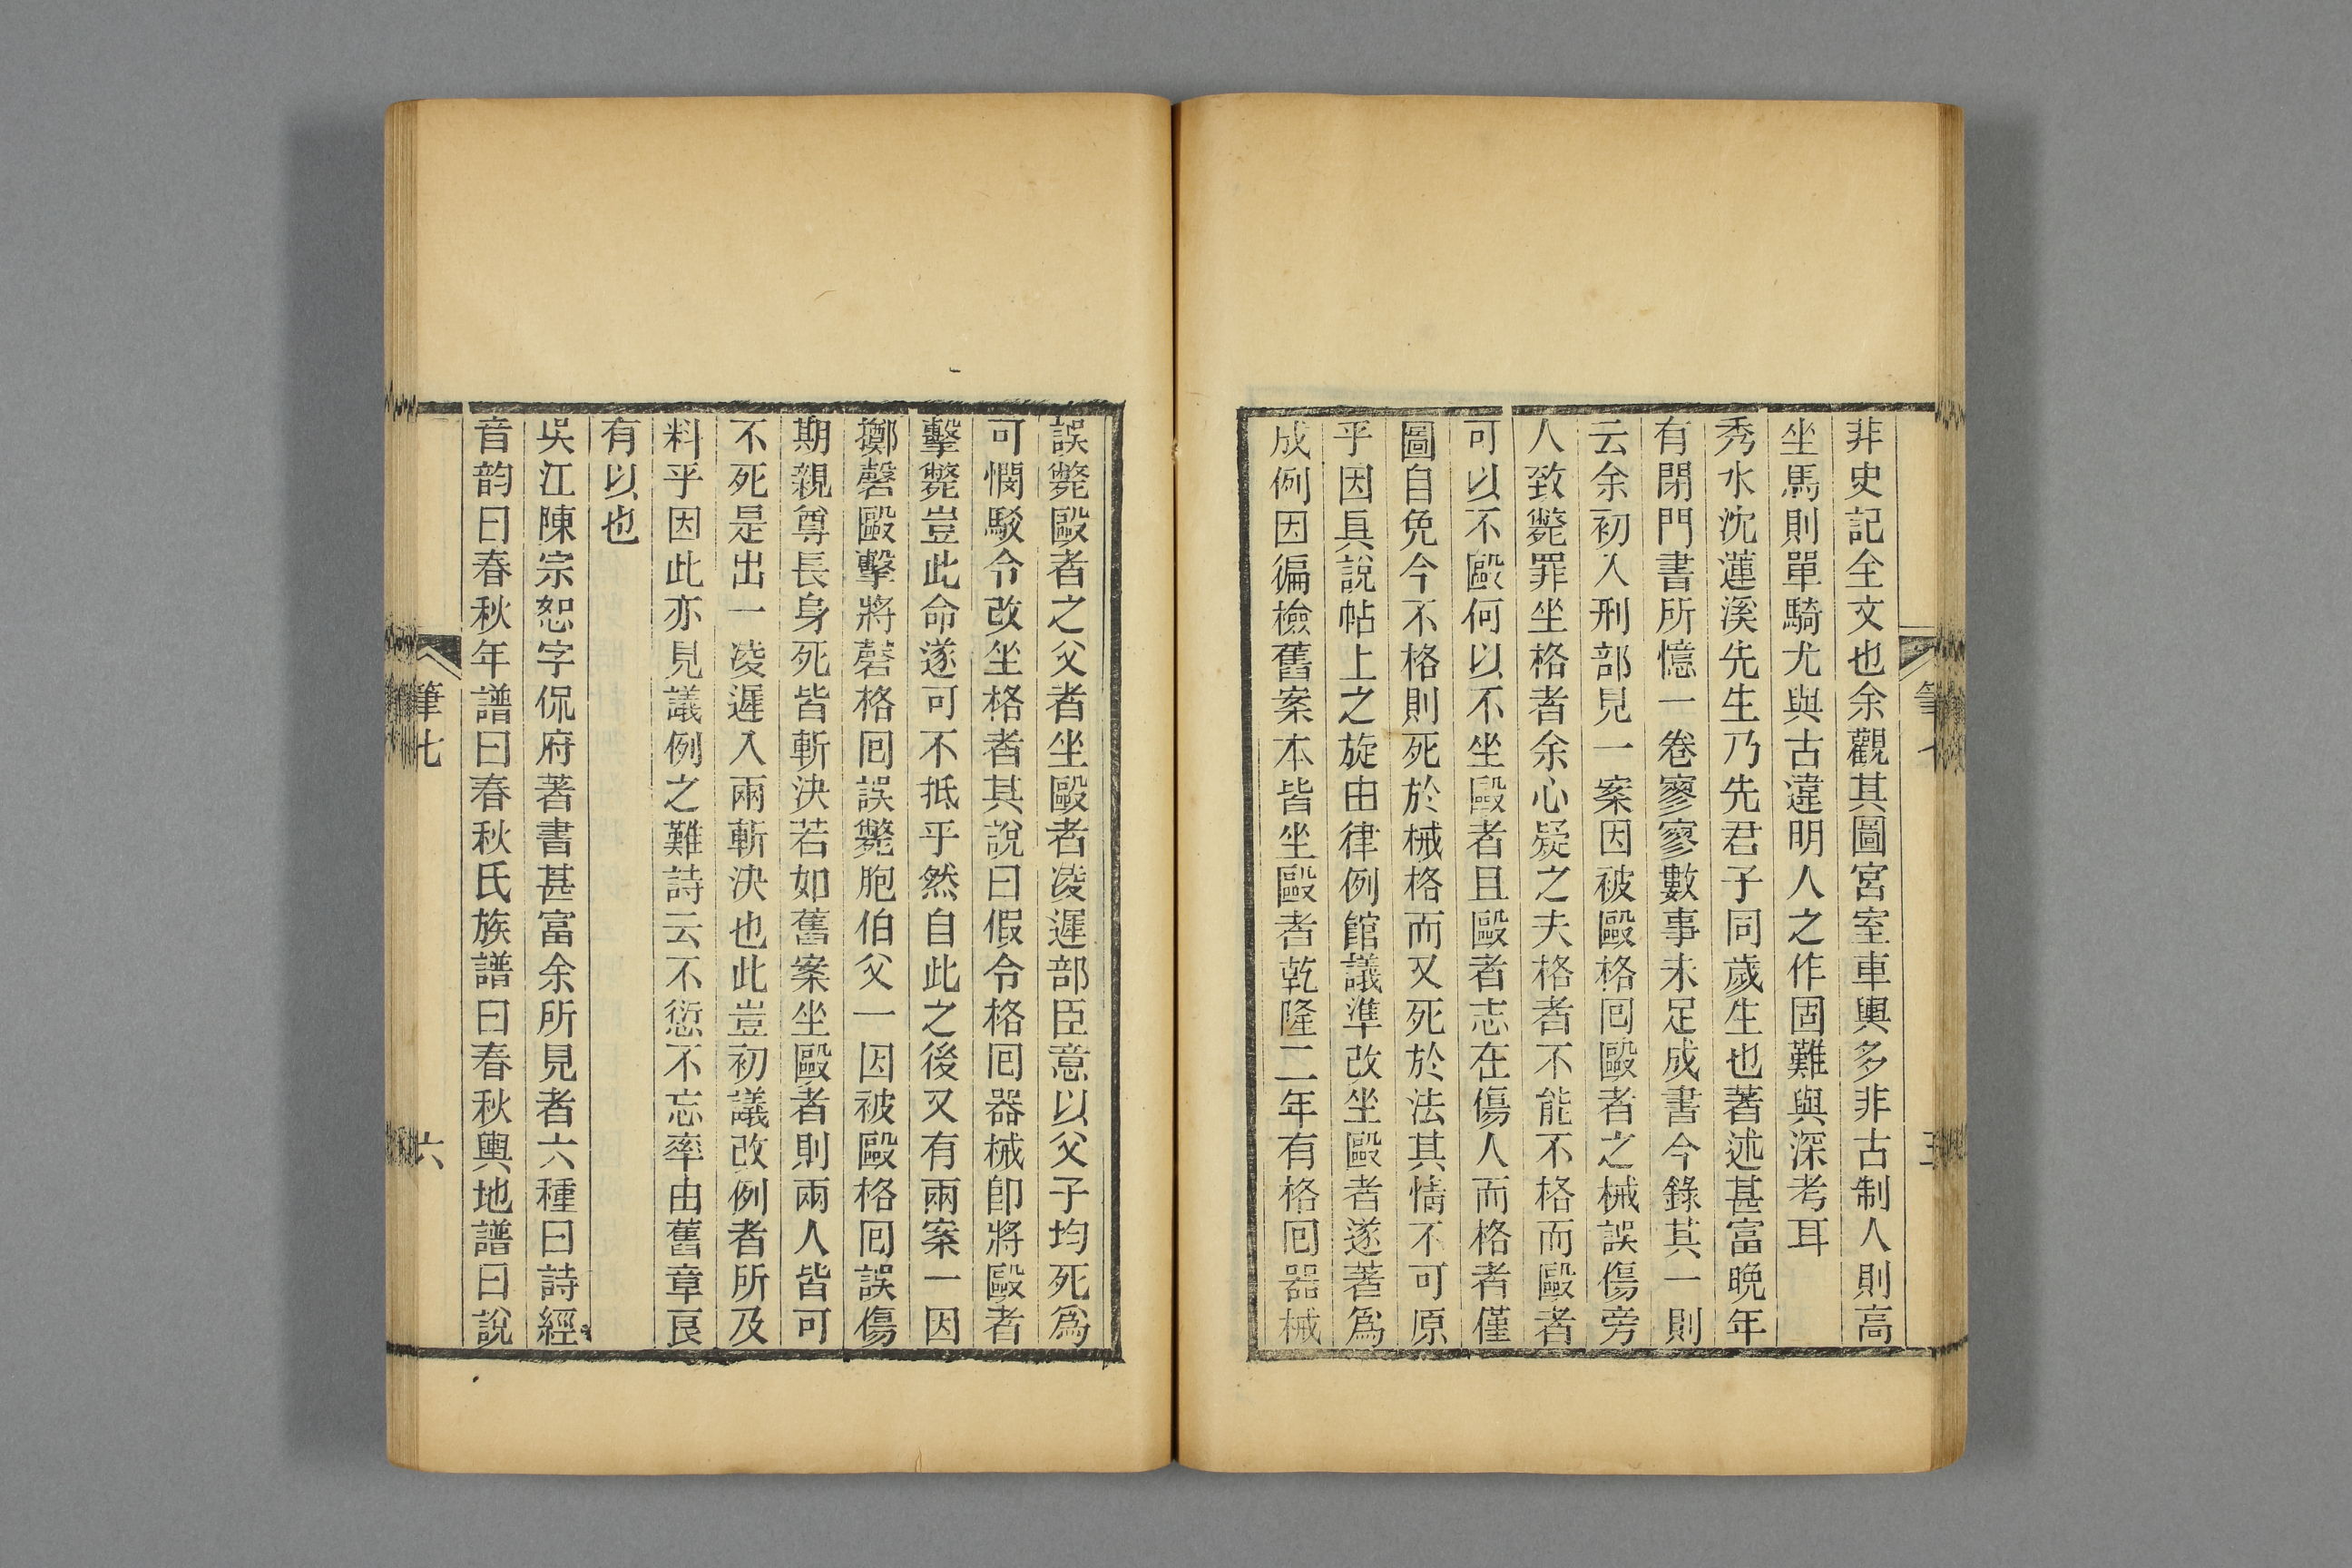 非史記全文也余觀其圖宮室車輿多非古制人則高
坐馬則單騎尤與古違明人之作固難與深考耳
秀水沈蓮溪先生乃先君子同歲生也著述甚富晩年
有閉門書所憶一卷寥寥數事未足成書今錄其一則
云余初入刑部見一案因被毆格囘毆者之械誤傷旁
人致斃罪坐格者余心疑之夫格者不能不格而毆者
可以不毆何以不坐毆者且毆者志在傷人而格者僅
圖自免今不格則死於械格而又死於法其情不可原
乎因具說帖上之旋由律例館議準改坐毆者遂著爲
成例因徧檢舊案本皆坐毆者乾隆二年有格囘器械
誤斃毆者之父者坐毆者凌遲部臣意以父子均死爲
可憫駁令改坐格者其說曰假令格囘器械卽將毆者
擊斃豈此命遂可不抵乎然自此之後又有兩案一因
擲磬毆擊將磬格囘誤斃胞伯父一因被毆格囘誤傷
期親尊長身死皆斬決若如舊案坐毆者則兩人皆可
不死是出一凌遲入兩斬決也此豈初議改例者所及
料乎因此亦見議例之難詩云不愆不忘率由舊章良
有以也
吳江陳宗恕字侃府著書甚富余所見者六種曰詩經
音韵曰春秋年譜曰春秋氏族譜曰春秋輿地譜曰說
筆七
六